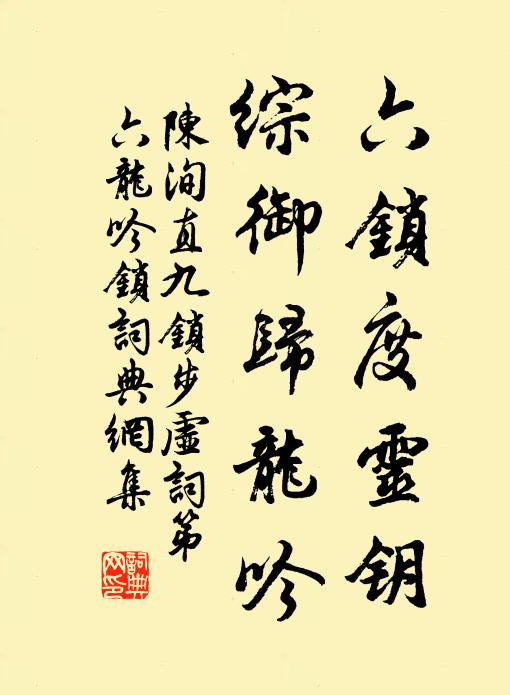 六鎖度靈鑰
綜御歸龍吟
陳洵直九鎖步虛詞第
六龍吟鎖詞典網集
詞典網印